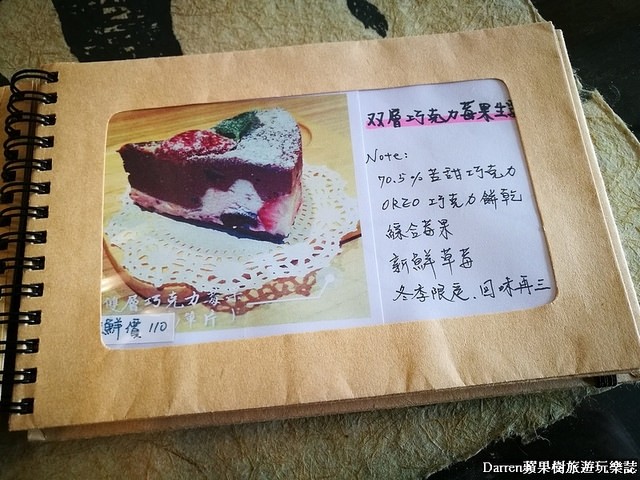 双層巧克力莓果生
Note:
70.5%苦甜巧克力
OREO 巧克力餅乾
綜合莓果
新鮮草莓
冬季限定.回味再三
雙層巧克力莓
單片)
鮮價 110
Darren蘋果樹旅遊玩樂誌